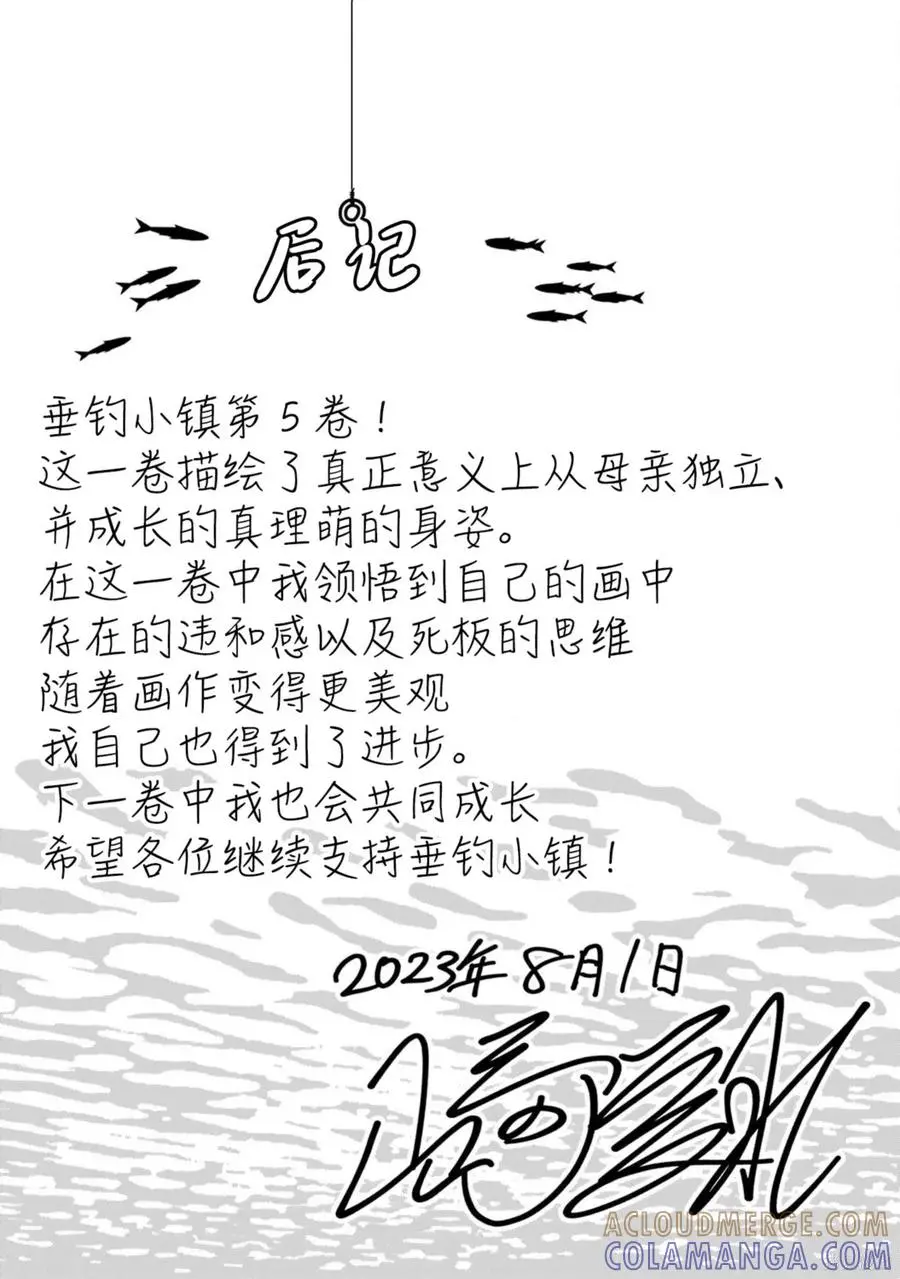 后记
垂钓小镇第5卷！
这一卷描绘了真正意义上从母亲独立、
并成长的真理萌的身姿。
在这一卷中我领悟到自己的画中
存在的违和感以及死板的思维
随着画作变得更美观
我自己也得到了进步。
下一卷中我也会共同成长
希望各位继续支持垂钓小镇！
2023年8月1日
ACLOUDMERGE.COM
COLAMANGA.COM